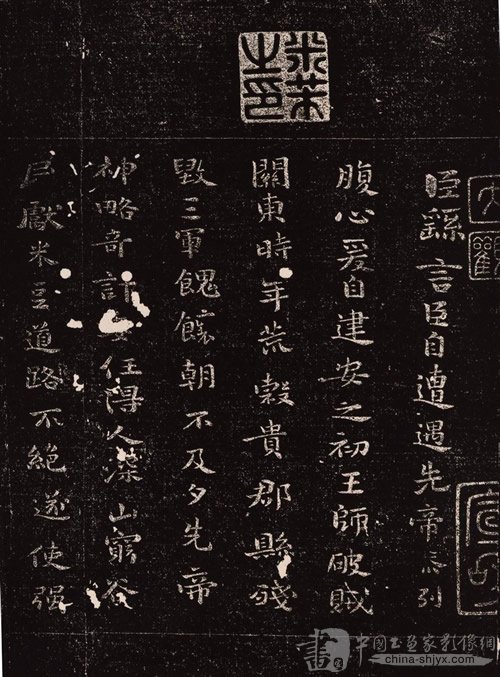 米芾之印
大觀
臣繇言臣自遭遇先帝忝列
腹心爰自建安之初王師破賊
關東時年荒穀貴郡縣殘
毀三軍餽饟朝不及夕先帝
神略奇計委任得人深山窮谷
民獻米豆道路不絕遂使强
書
中国书画家影像網
china-shjyx.com